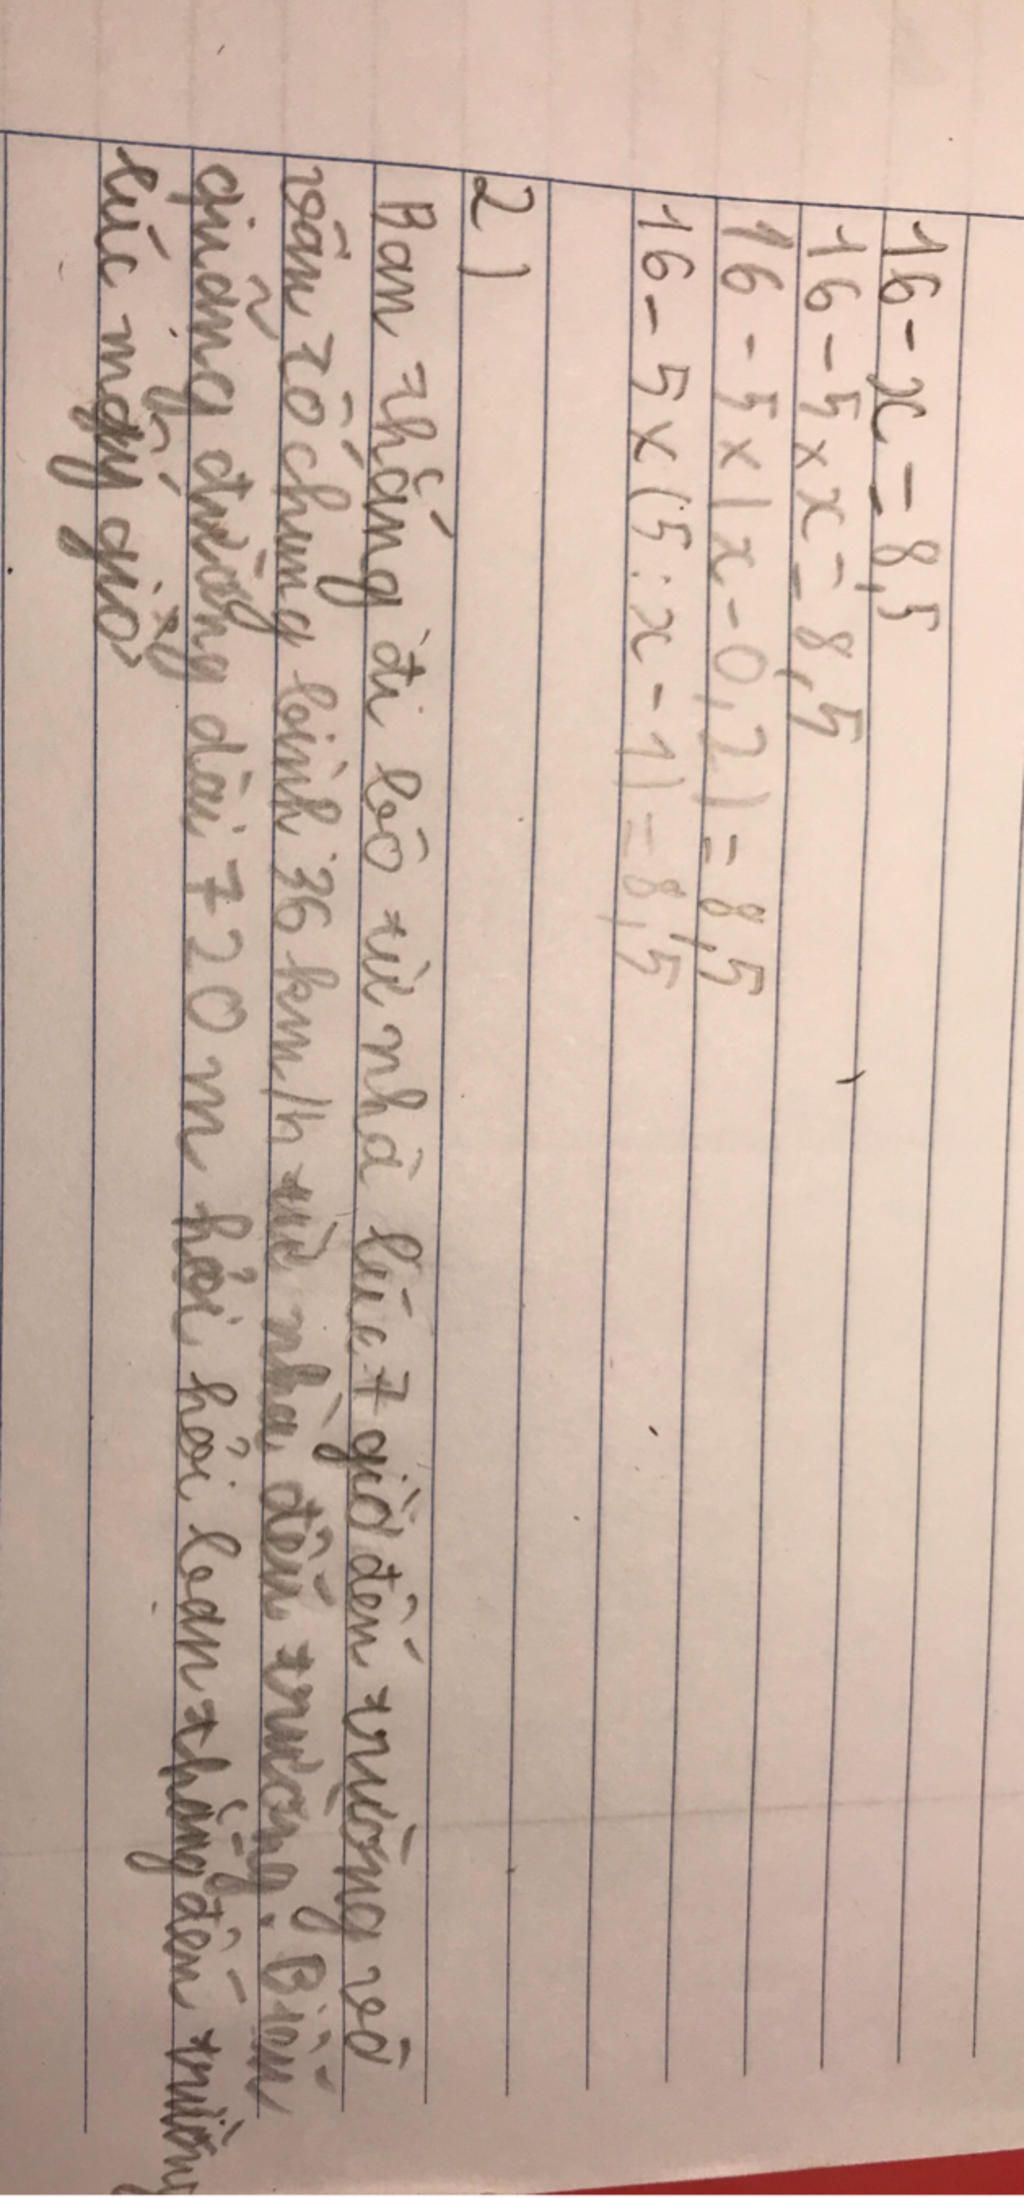 16 - x = 8,5
16 - 5 × x = 8,5
16 - 5 × (x - 0,2) = 8,5
16 - 5 × (5 : x - 1) = 8,5
2)
Bạn thắng đi bộ từ nhà lúc 7 giờ đến trường vớ
vân tôc chung bình 36 km/h từ nhà đến trường. Biến
quãng đường dài 720 m hỏi hỏi bạn thắng đến trường
lúc mấy giờ